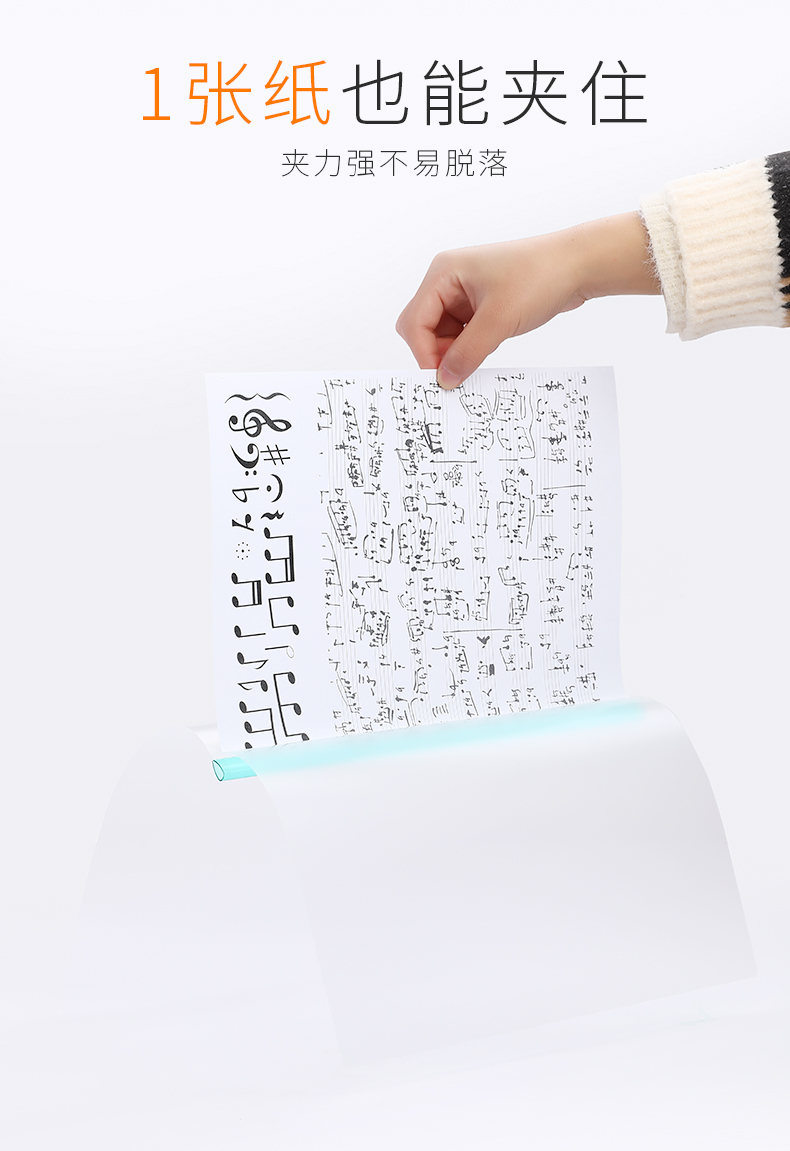 1张纸也能夹住
夹力强不易脱落